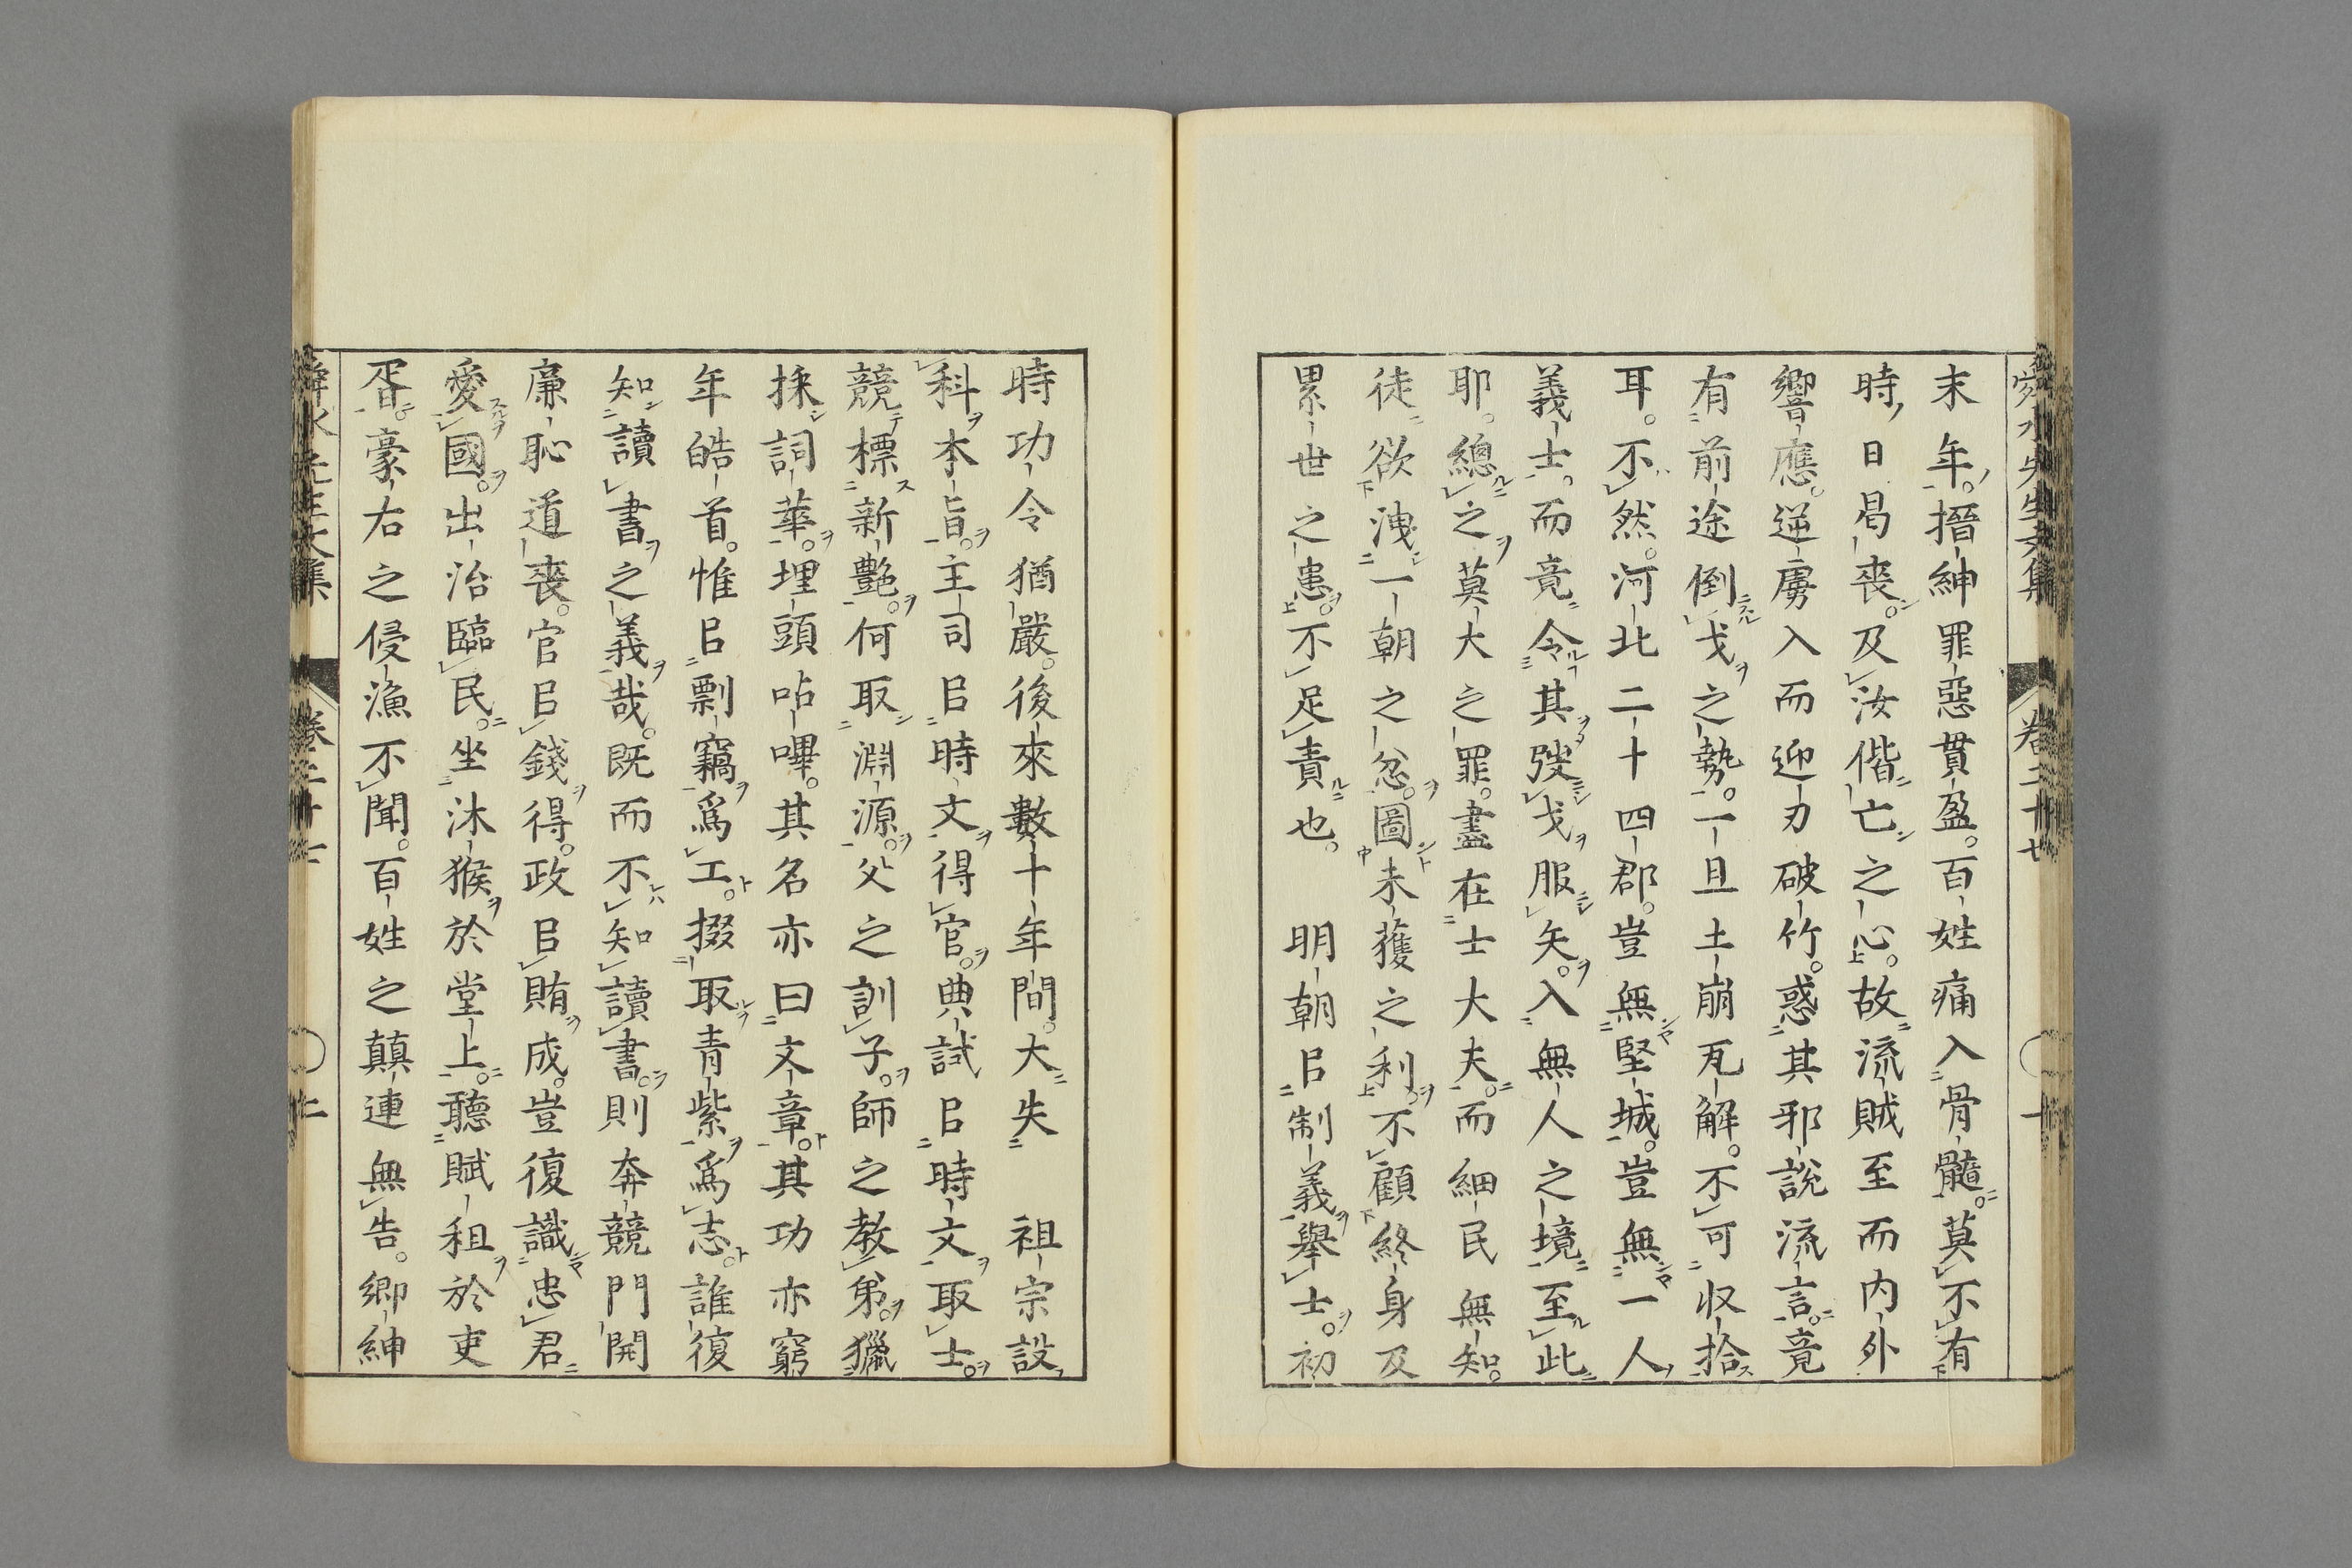 末年。搢紳罪惡貫盈。百姓痛入骨髓。莫不有
時日曷喪。及汝偕亡之心。故流賊至而内外
響應。逆虜入而迎刃破竹。惑其邪說流言。竟
有前途倒戈之勢。一旦土崩瓦解。不可収拾
耳。不然。河北二十四郡。豈無堅城。豈無一人
義士。而竟令其弢戈服矢。入無人之境。至此
耶。總之莫大之罪。盡在士大夫。而細民無知。
徒欲洩一朝之忿。圖未獲之利。不顧終身及
累世之患。不足責也。 明朝㠯制義舉士。初
時功令猶嚴。後來數十年間。大失 祖宗設
科本旨。主司㠯時文得官。典試㠯時文取士。
競標新艷。何取淵源。父之訓子。師之教弟。獵
採詞華。埋頭呫嗶。其名亦曰文章。其功亦窮
年皓首。惟㠯剽竊爲工。掇取青紫爲志。誰復
知讀書之義哉。既而不知讀書。則奔競門開
廉恥道喪。官㠯錢得。政㠯賄成。豈復識忠君
愛國。出治臨民。坐沐猴於堂上。聽賦租於吏
胥。豪右之侵漁不聞。百姓之顛連無告。鄉紳
舜水先生文集 卷二十七